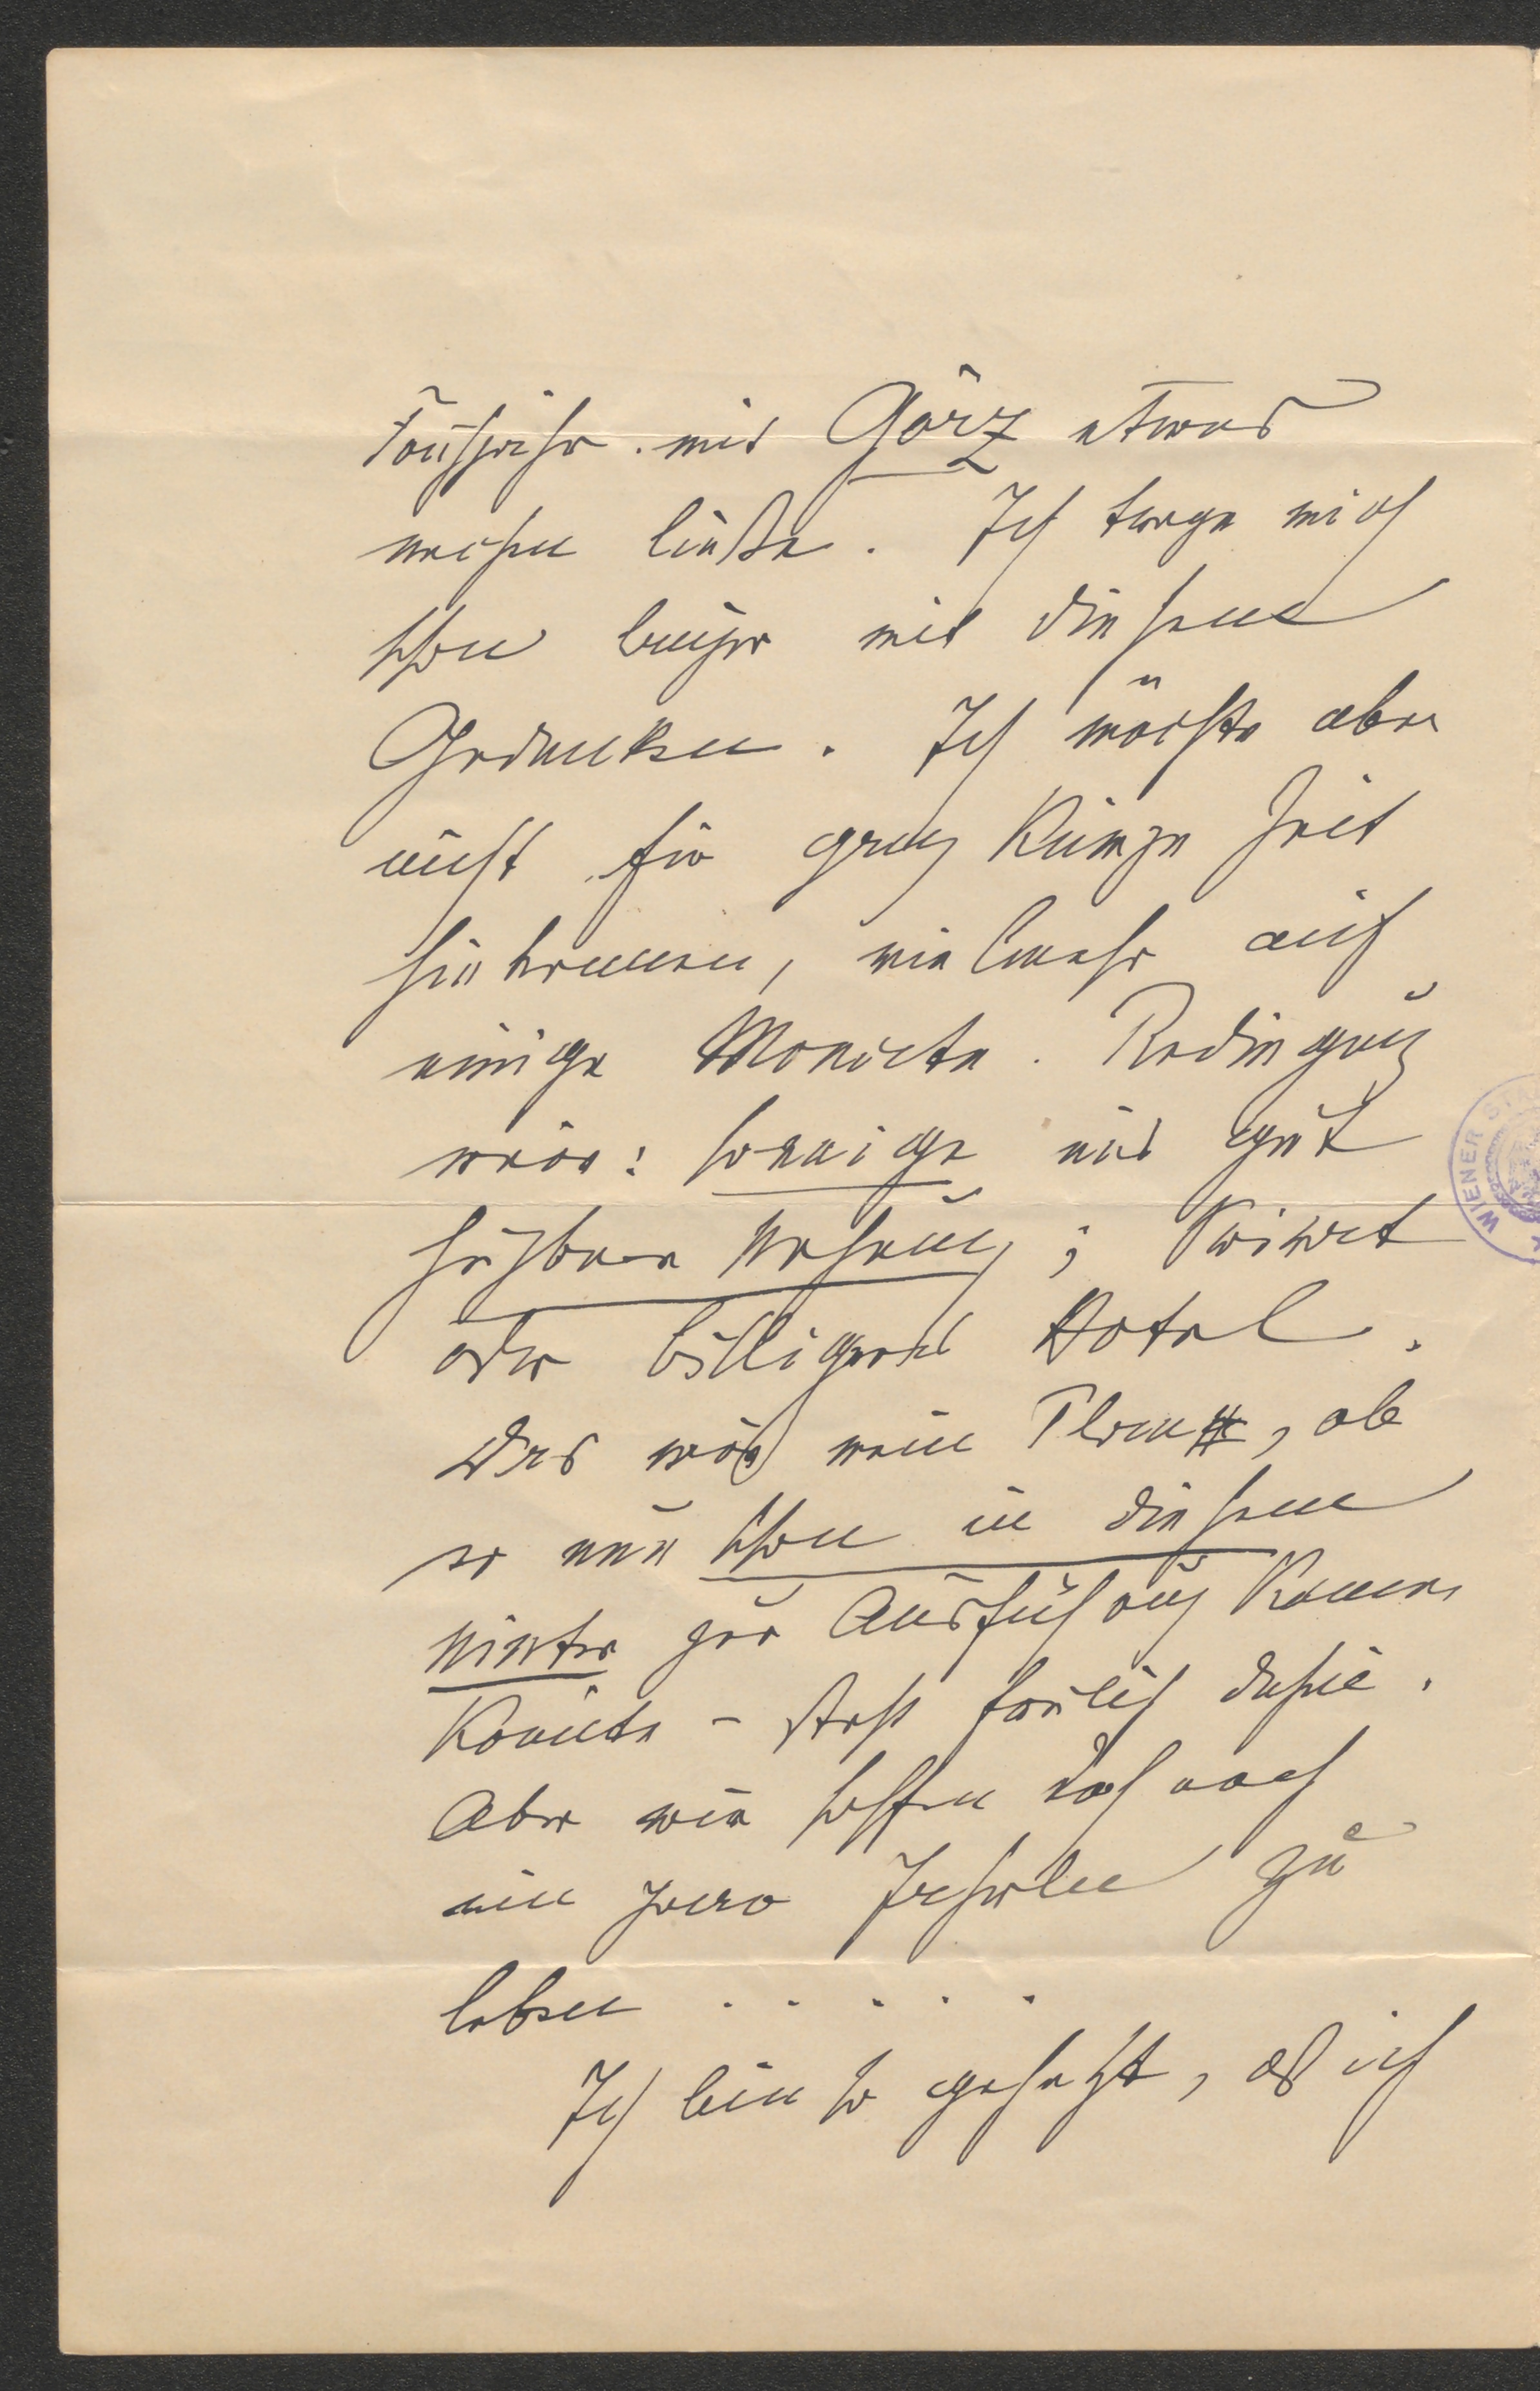 mit Görz etwas
machen ließe. Ich trage mich
schon länger mit diesem
Gedanken. Ich möchte aber
nicht für ganz kurze Zeit
hinkommen, vielmehr auf
einige Monate. Bedingung
wäre: sonnige und gut
heizbare Wohnung; Privat
oder billigeres Hotel.
Das wär mein Plan, ob
er nun schon in diesem
Winter zur Ausführung kommen
könnte – steht freilich dahin.
Aber wir hoffen doch noch
ein paar Jahrln zu
leben . . . . .
Ich bin so gehetzt, daß ich
WIENER